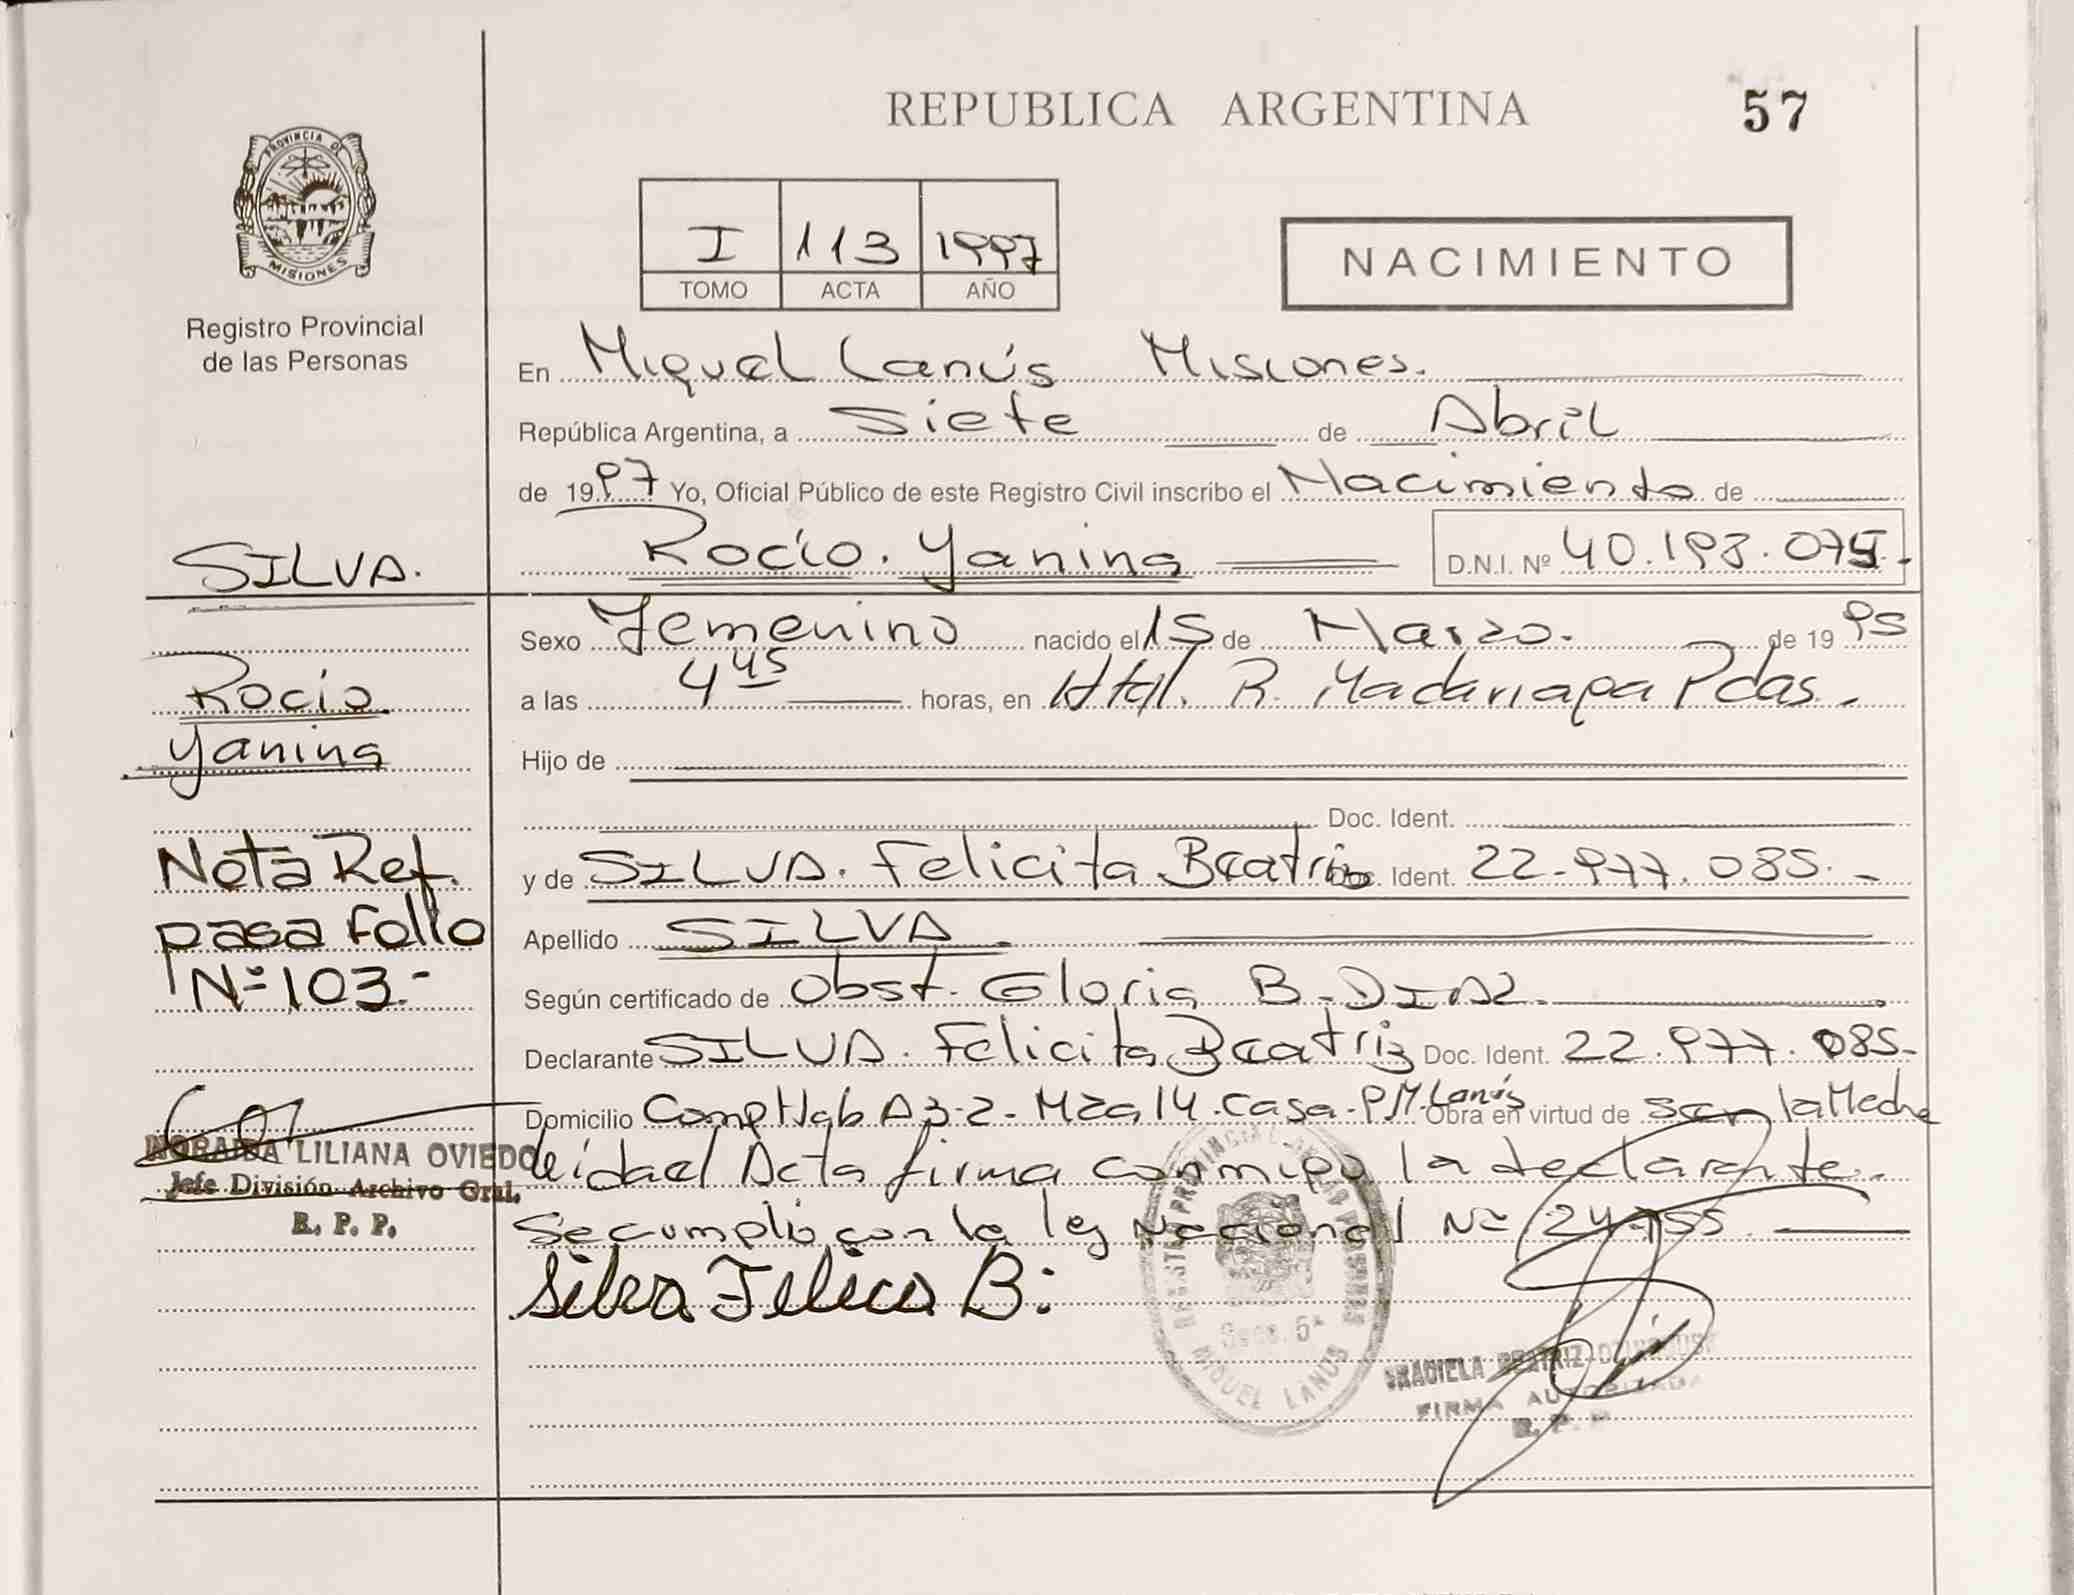 REPUBLICA ARGENTINA
57
PROVINCIA DE
MISIONES
Registro Provincial
de las Personas
I 113 1997
TOMO ACTA AÑO
NACIMIENTO
En Miguel Lanús Misiones.
República Argentina, a Siete de Abril
de 1997 Yo, Oficial Público de este Registro Civil inscribo el Nacimiento de
SILVA.
Rocío. Yanina D.N.I. Nº 40.193.075.-
Sexo Femenino nacido el 15 de Marzo. de 1995
Rocío
Yanina
a las 4 45 horas, en Htal. R. Madariaga Pdas.-
Hijo de
Doc. Ident.
Nota Ref.
pasa folio
Nº 103.-
y de SILVA. Felicita Beatriz Doc. Ident. 22.977.085.-
Apellido SILVA
Según certificado de Obst. Gloria B. DIAZ.
Declarante SILVA. Felicita Beatriz Doc. Ident. 22.977.085-
Domicilio Comp Hab A3-2-Mza 14. Casa-P.M. Lanús Obra en virtud de ser la Madre
leída el Acta firma conmigo la declarante.-
Se cumplió con la ley Nacional Nº 24.755.
Silva Felica B.
NORAIDA LILIANA OVIEDO
Jefe División Archivo Gral.
R. P. P.
REGISTRO PROVINCIAL DE LAS PERSONAS
MIGUEL LANUS
GRACIELA BEATRIZ
FIRMA AUTORIZADA
R. P. P.